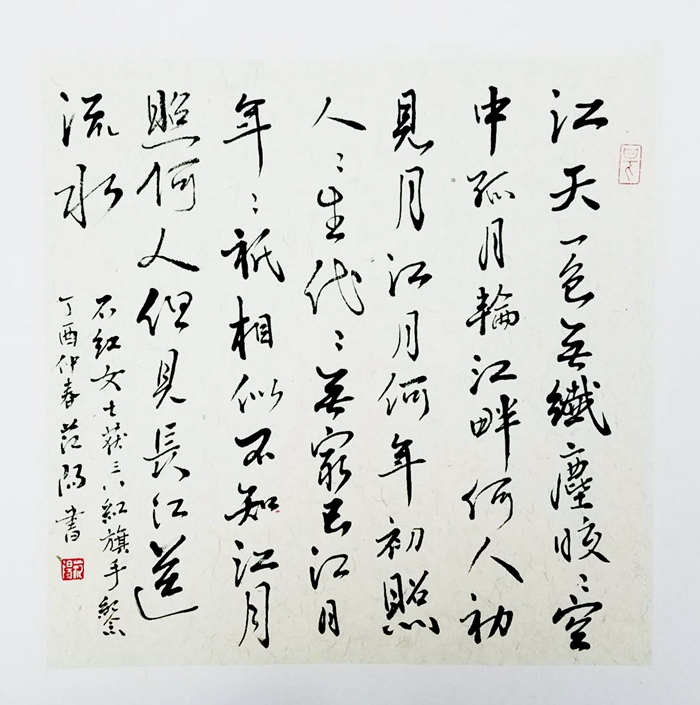 江天一色無纖塵皎〻空
中孤月輪江畔何人初
見月江月何年初照
人〻生代〻無窮已江月
年〻祇相似不知江月
照何人但見長江送
流水
石红女士获三八紅旗手
丁酉仲春范阳書